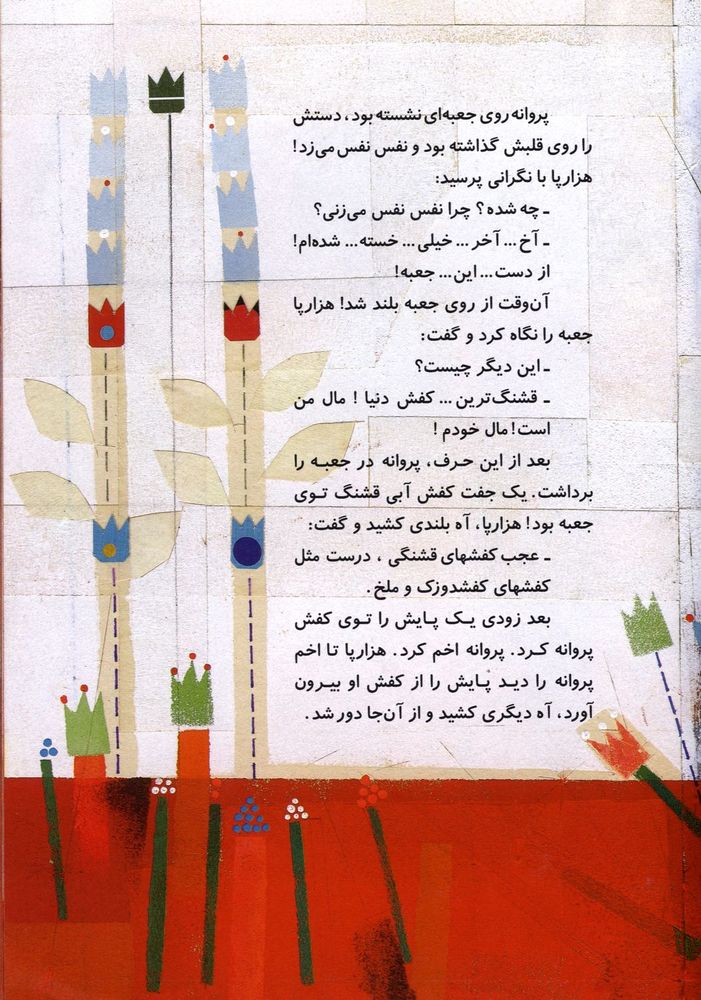 پروانه روی جعبه‌ای نشسته بود، دستش
را روی قلبش گذاشته بود و نفس نفس می‌زد!
هزارپا با نگرانی پرسید:
ـ چه شده؟ چرا نفس نفس می‌زنی؟
ـ آخ... آخر... خیلی... خسته... شده‌ام!
از دست... این... جعبه!
آن‌وقت از روی جعبه بلند شد! هزارپا
جعبه را نگاه کرد و گفت:
ـ این دیگر چیست؟
ـ قشنگ‌ترین... کفش دنیا ! مال من
است! مال خودم !
بعد از این حرف، پروانه در جعبـه را
برداشت. یک جفت کفش آبی قشنگ تـوی
جعبه بود! هزارپا، آه بلندی کشید و گفت:
ـ عجب کفشهای قشنگی ، درست مثل
کفشهای کفشدوزک و ملخ.
بعد زودی یـک پـایش را تـوی کفش
پروانه کـرد. پروانه اخم کرد. هزارپا تا اخم
پروانه را دیـد پـایش را از کفش او بیـرون
آورد، آه دیگری کشید و از آن‌جا دور شد.